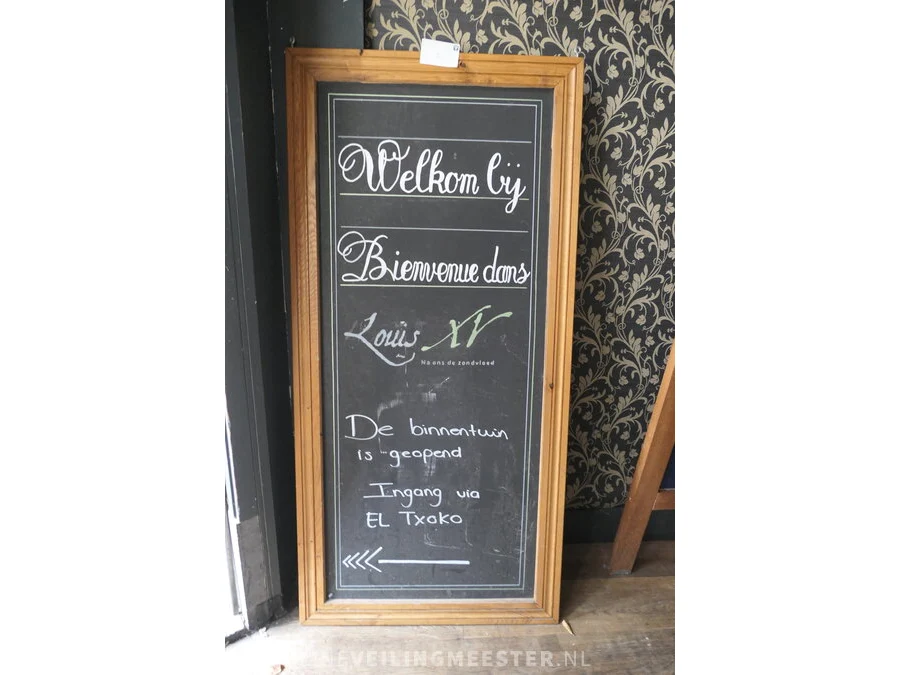 Welkom bij
Bienvenue dans
Louis XV
Na ons de zondvloed
De binnentuin
is geopend
Ingang via
EL Txoko
EVEILINGMEESTER.NL